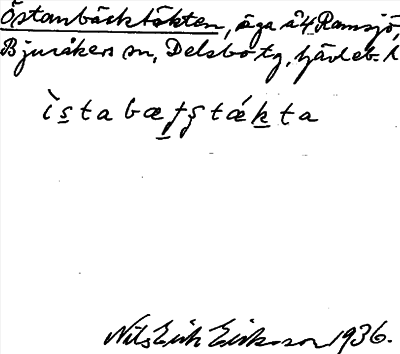 Östanbäcktäkten, äga å 4 Ramsjö,
Bjuråkers sn, Delsbo tg, Gävleb. l
i̇̀s̲tabæfştǽk̲ta
Nils Erik Eriksson 1936.